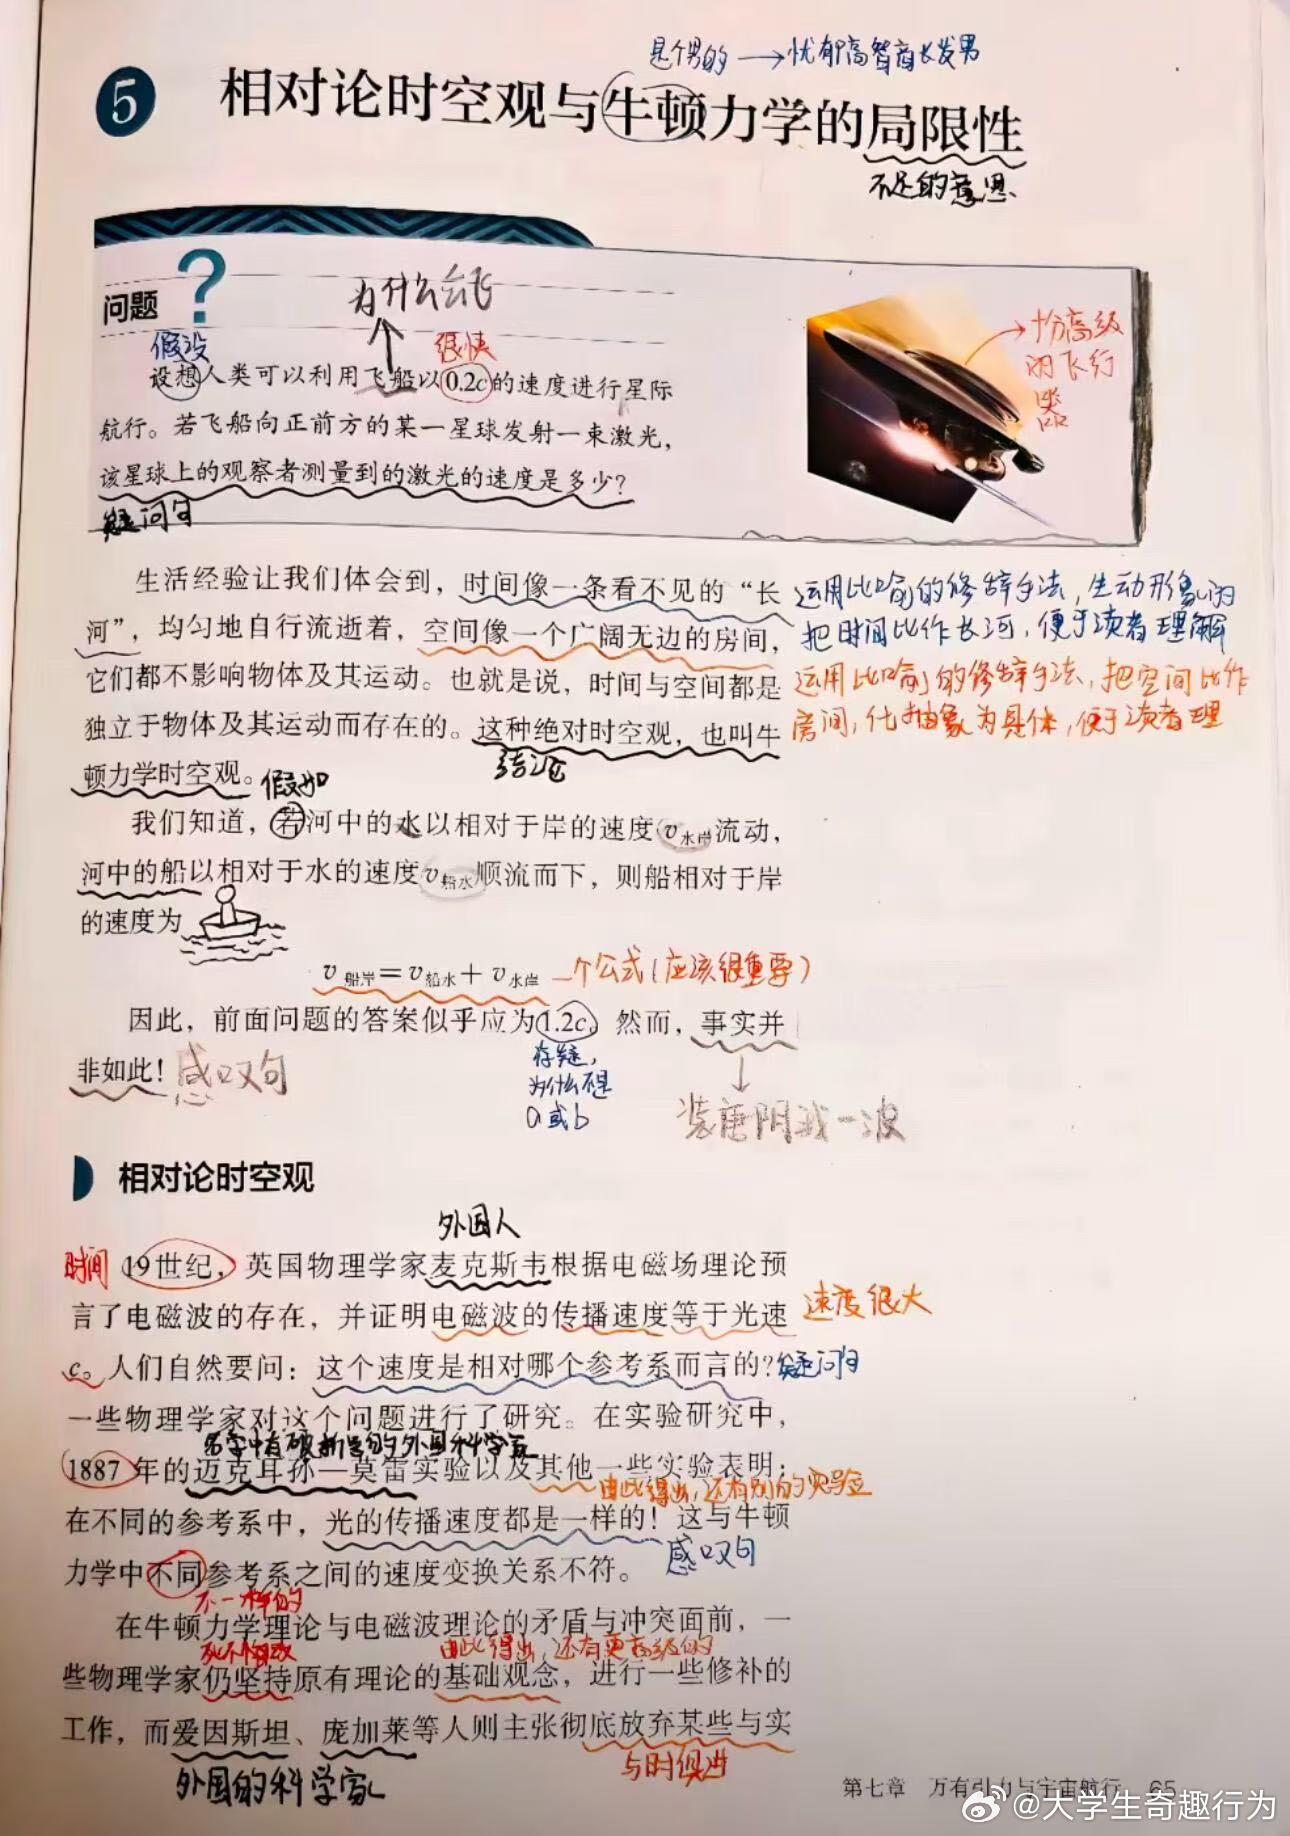 是个男的→忧郁高智商长发男
5 相对论时空观与牛顿力学的局限性
不足的意思
问题?
为什么会飞
假设
很快
设想人类可以利用飞船以0.2c的速度进行星际
航行。若飞船向正前方的某一星球发射一束激光，
该星球上的观察者测量到的激光的速度是多少？
疑问句
十分高级
的飞行
器
生活经验让我们体会到，时间像一条看不见的“长
河”，均匀地自行流逝着，空间像一个广阔无边的房间，
它们都不影响物体及其运动。也就是说，时间与空间都是
独立于物体及其运动而存在的。这种绝对时空观，也叫牛
顿力学时空观。
运用比喻的修辞手法，生动形象的
把时间比作长河，便于读者理解
运用比喻的修辞手法，把空间比作
房间，化抽象为具体，便于读者理
结论
假如
我们知道，若河中的水以相对于岸的速度v水岸流动，
河中的船以相对于水的速度v船水顺流而下，则船相对于岸
的速度为
v船岸＝v船水＋v水岸
一个公式（应该很重要）
因此，前面问题的答案似乎应为1.2c。然而，事实并
非如此！
感叹句
存疑，
为什么不是
a或b
装唐阴我一波
相对论时空观
外国人
时间
19世纪，英国物理学家麦克斯韦根据电磁场理论预
言了电磁波的存在，并证明电磁波的传播速度等于光速
速度很大
c。人们自然要问：这个速度是相对哪个参考系而言的？
疑问句
一些物理学家对这个问题进行了研究。在实验研究中，
名字中有破折号的外国科学家
1887年的迈克耳孙—莫雷实验以及其他一些实验表明：
由此得出，还有别的实验
在不同的参考系中，光的传播速度都是一样的！这与牛顿
感叹句
力学中不同参考系之间的速度变换关系不符。
不一样的
在牛顿力学理论与电磁波理论的矛盾与冲突面前，一
死不悔改
由此得出，还有更高级的
些物理学家仍坚持原有理论的基础观念，进行一些修补的
工作，而爱因斯坦、庞加莱等人则主张彻底放弃某些与实
外国的科学家
与时俱进
第七章 万有引力与宇宙航行 65
@大学生奇趣行为